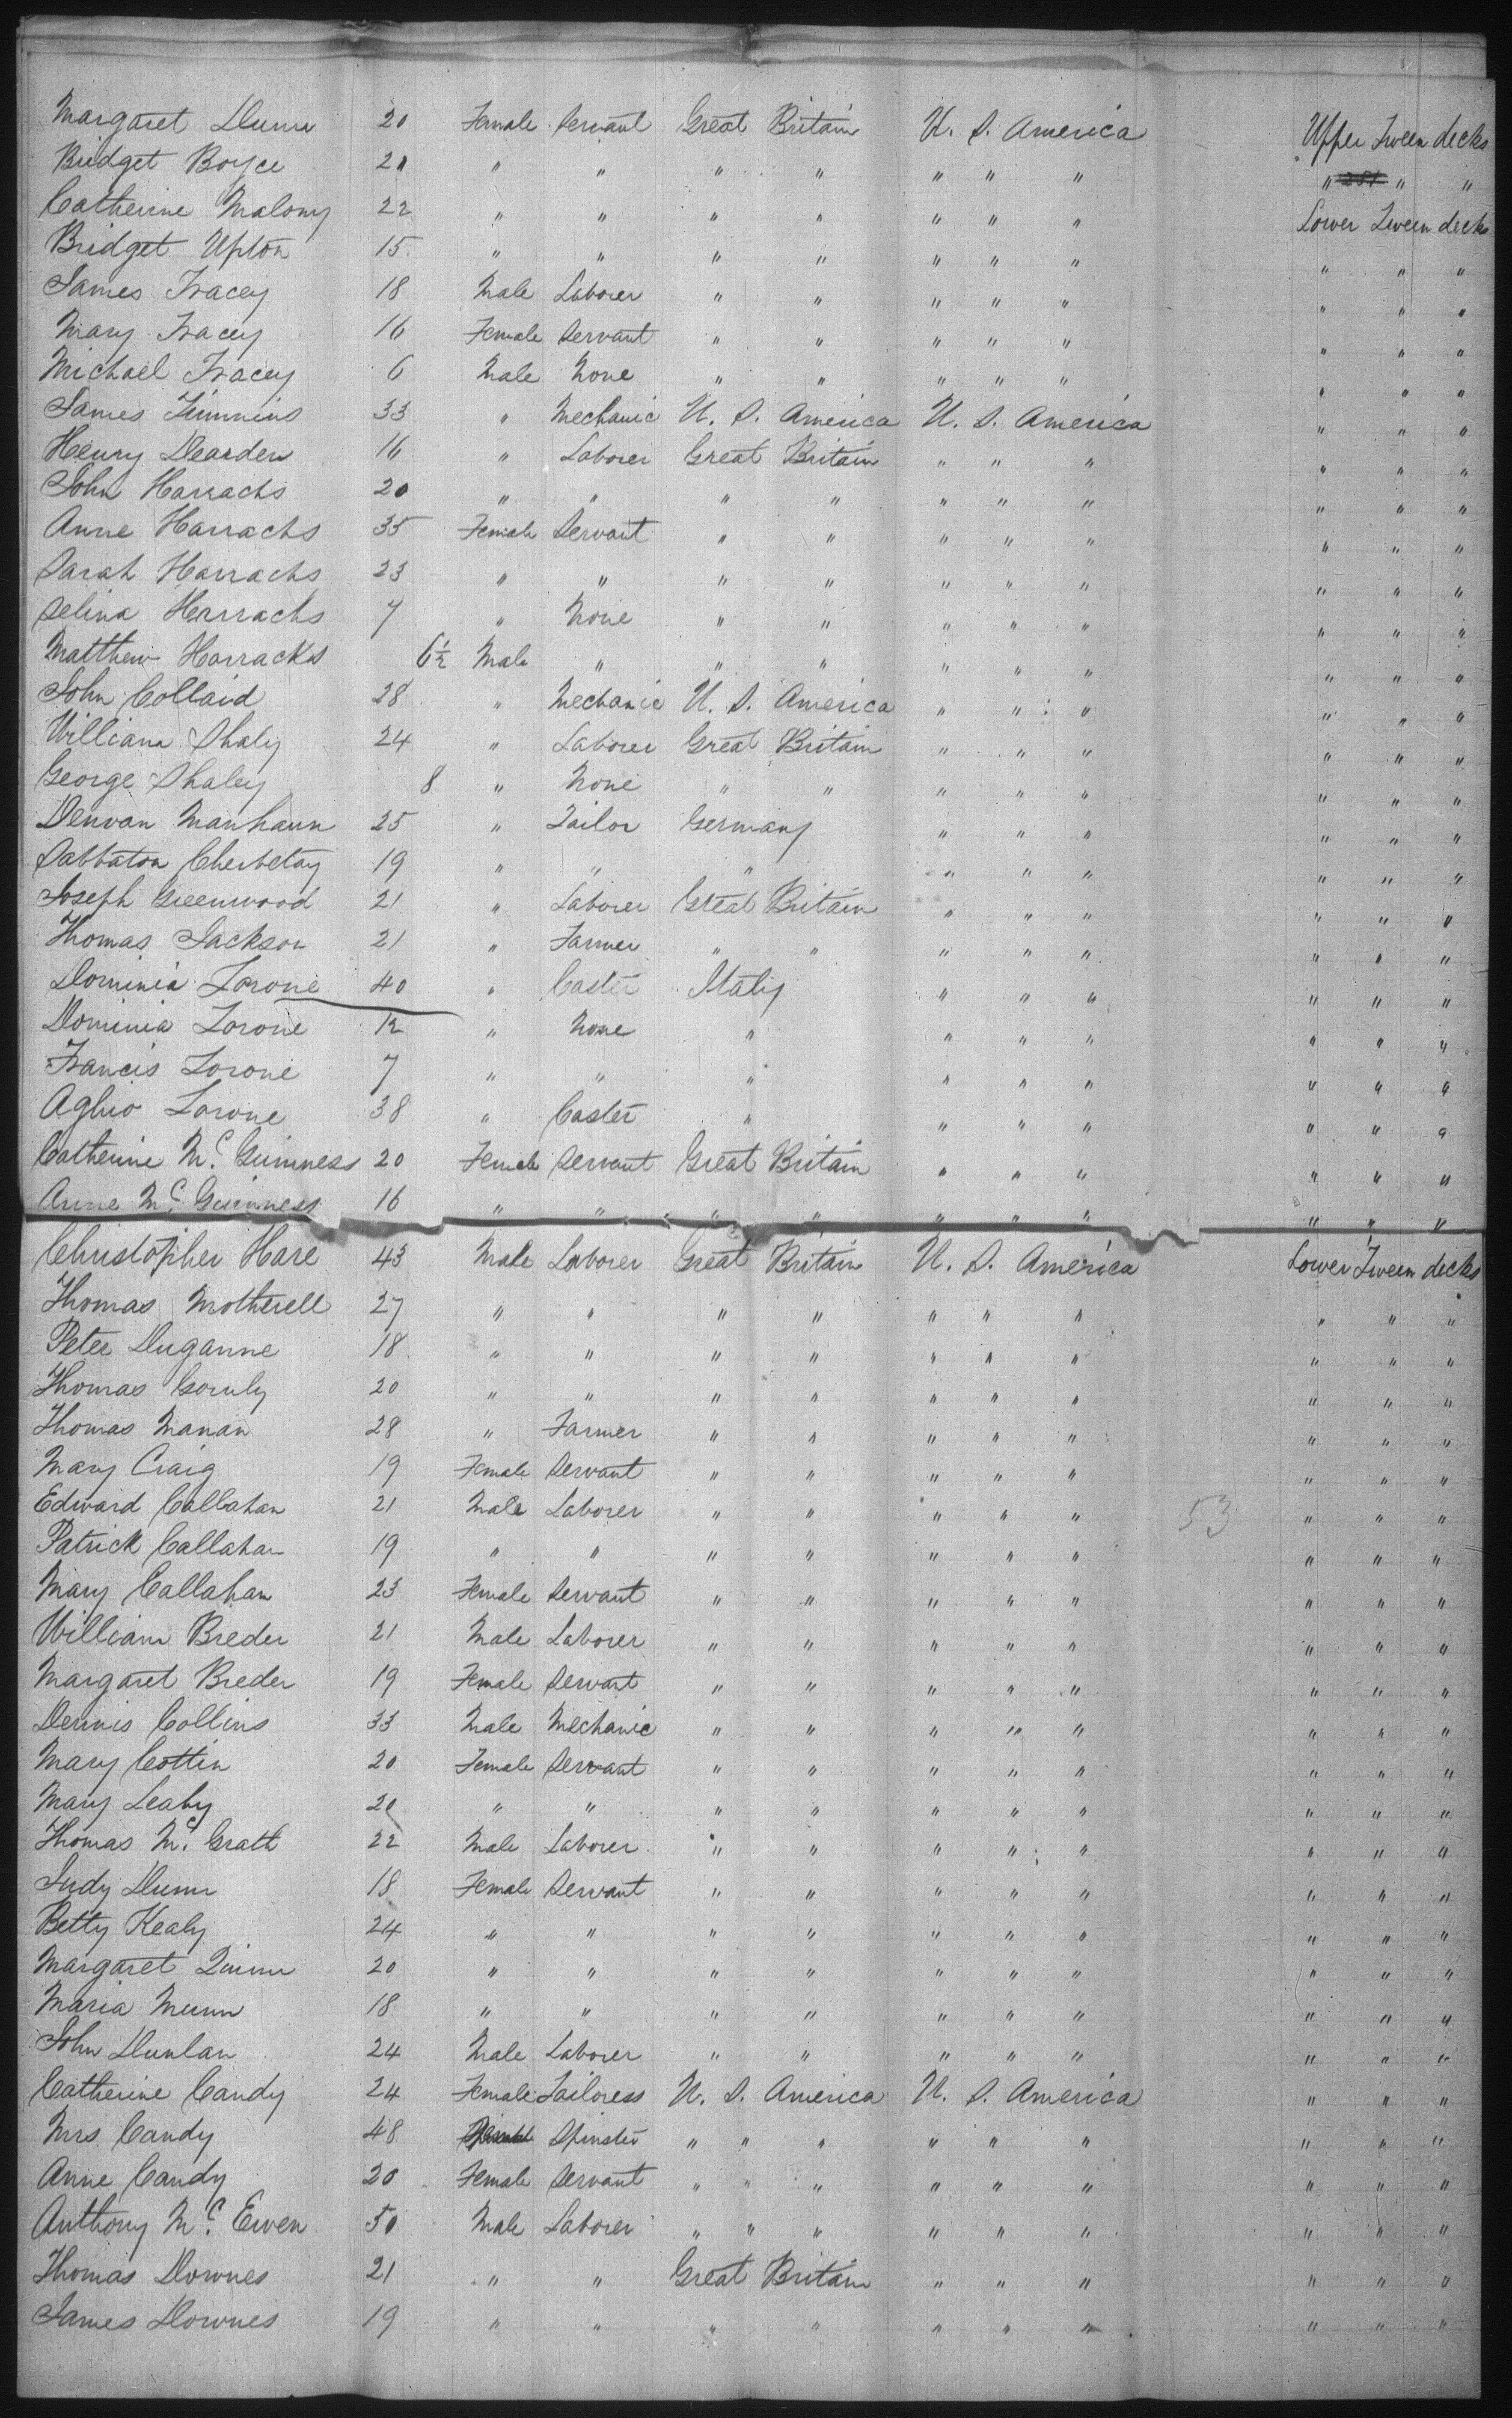 Margaret Dunn 20 Female Servant Great Britain U. S. America Upper Tween decks
Bridget Boyce 20 " " " " " " " " " "
Catherine Malony 22 " " " " " " " Lower Tween decks
Bridget Upton 15 " " " " " " " " " "
James Tracey 18 Male Laborer " " " " " " " "
Mary Tracey 16 Female Servant " " " " " " " "
Michael Tracey 6 Male None " " " " " " " "
James Timmins 33 " Mechanic U. S. America U. S. America " " "
Henry Dearden 16 " Laborer Great Britain " " " " " "
John Harrachs 20 " " " " " " " " " "
Anne Harrachs 35 Female Servant " " " " " " " "
Sarah Harrachs 23 " " " " " " " " " "
Selina Harrachs 7 " None " " " " " " " "
Matthew Harracks 6½ Male " " " " " " " " "
John Collaid 28 " Mechanic U. S. America " " " " " "
William Shaly 24 " Laborer Great Britain " " " " " "
George Shaley 8 " None " " " " " " " "
Denvan Manhaun 25 " Tailor Germany " " " " " "
Sabbaton Cherbetay 19 " " " " " " " " "
Joseph Greenwood 21 " Laborer Great Britain " " " " " "
Thomas Jackson 21 " Farmer " " " " " " " "
Dominia Lorone 40 " Caster Italy " " " " " "
Dominia Lorone 12 " None " " " " " " "
Francis Lorone 7 " " " " " " " " "
Aglio Lorone 38 " Caster " " " " " " "
Catherine Mc. Guinness 20 Female Servant Great Britain " " " " " "
Anne Mc. Guinness 16 " " " " " " " " " "
Christopher Hare 43 Male Laborer Great Britain U. S. America Lower Tween decks
Thomas Motherell 27 " " " " " " " " " "
Peter Duganne 18 " " " " " " " " " "
Thomas Gormly 20 " " " " " " " " " "
Thomas Manan 28 " Farmer " " " " " " " "
Mary Craig 19 Female Servant " " " " " " " "
Edward Callahan 21 Male Laborer " " " " " 53 " " "
Patrick Callahan 19 " " " " " " " " " "
Mary Callahan 23 Female Servant " " " " " " " "
William Breder 21 Male Laborer " " " " " " " "
Margaret Breder 19 Female Servant " " " " " " " "
Dennis Collins 33 Male Mechanic " " " " " " " "
Mary Cottin 20 Female Servant " " " " " " " "
Mary Leahy 20 " " " " " " " " " "
Thomas Mc. Grath 22 Male Laborer " " " " " " " "
Judy Dunn 18 Female Servant " " " " " " " "
Betty Kealy 24 " " " " " " " " " "
Margaret Quinn 20 " " " " " " " " " "
Maria Munn 18 " " " " " " " " " "
John Dunlan 24 Male Laborer " " " " " " " "
Catherine Candy 24 Female Tailoress U. S. America U. S. America " " "
Mrs. Candy 48 Spinster " " " " " " " " "
Anne Candy 20 Female Servant " " " " " " " " "
Anthony Mc. Ewen 50 Male Laborer " " " " " " " " "
Thomas Downes 21 " " Great Britain " " " " " "
James Downes 19 " " " " " " " " " "